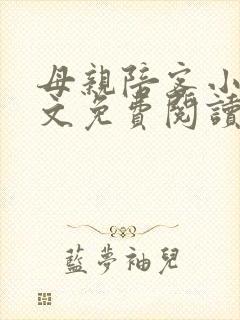 母親陪客小
文免費閱讀
藍夢袖兒